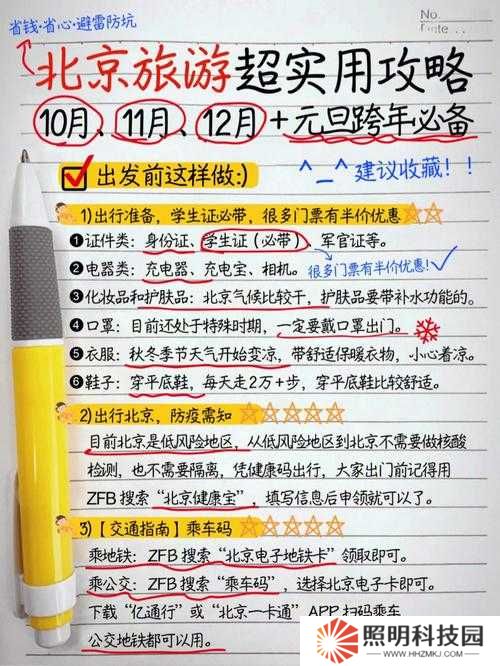 省钱·省心·避雷防坑
No.
北京旅游超实用攻略
10月、11月、12月+元旦跨年必备
出发前这样做:)
^_^建议收藏!!
1)出行准备,学生证必带,很多门票有半价优惠
❶证件类:身份证、学生证(必带)、军官证等。
❷电器类:充电器、充电宝、相机。
很多门票有半价优惠!
❸化妆品和护肤品:北京气候比较干,护肤品要带补水功能的。
❹口罩:目前还处于特殊时期,一定要戴口罩出门。
❺衣服:秋冬季节天气开始变凉,带舒适保暖衣物,小心着凉。
❻鞋子:穿平底鞋,每天走2万+步,穿平底鞋比较舒适。
2)出行北京,防疫需知
目前北京是低风险地区,从低风险地区到北京不需要做核酸
检测,也不需要隔离,凭健康码出行,大家出门前记得用
ZFB搜索“北京健康宝”,填写信息后申领就可以了。
3)【交通指南】乘车码
乘地铁:ZFB搜索“北京电子地铁卡”领取即可。
乘公交:ZFB搜索“乘车码”,选择北京电子卡即可。
下载“亿通行”或“北京一卡通”APP扫码乘车
公交地铁都可以用。
照明科技园
HTTP://WWW.HHZMKJ.COM